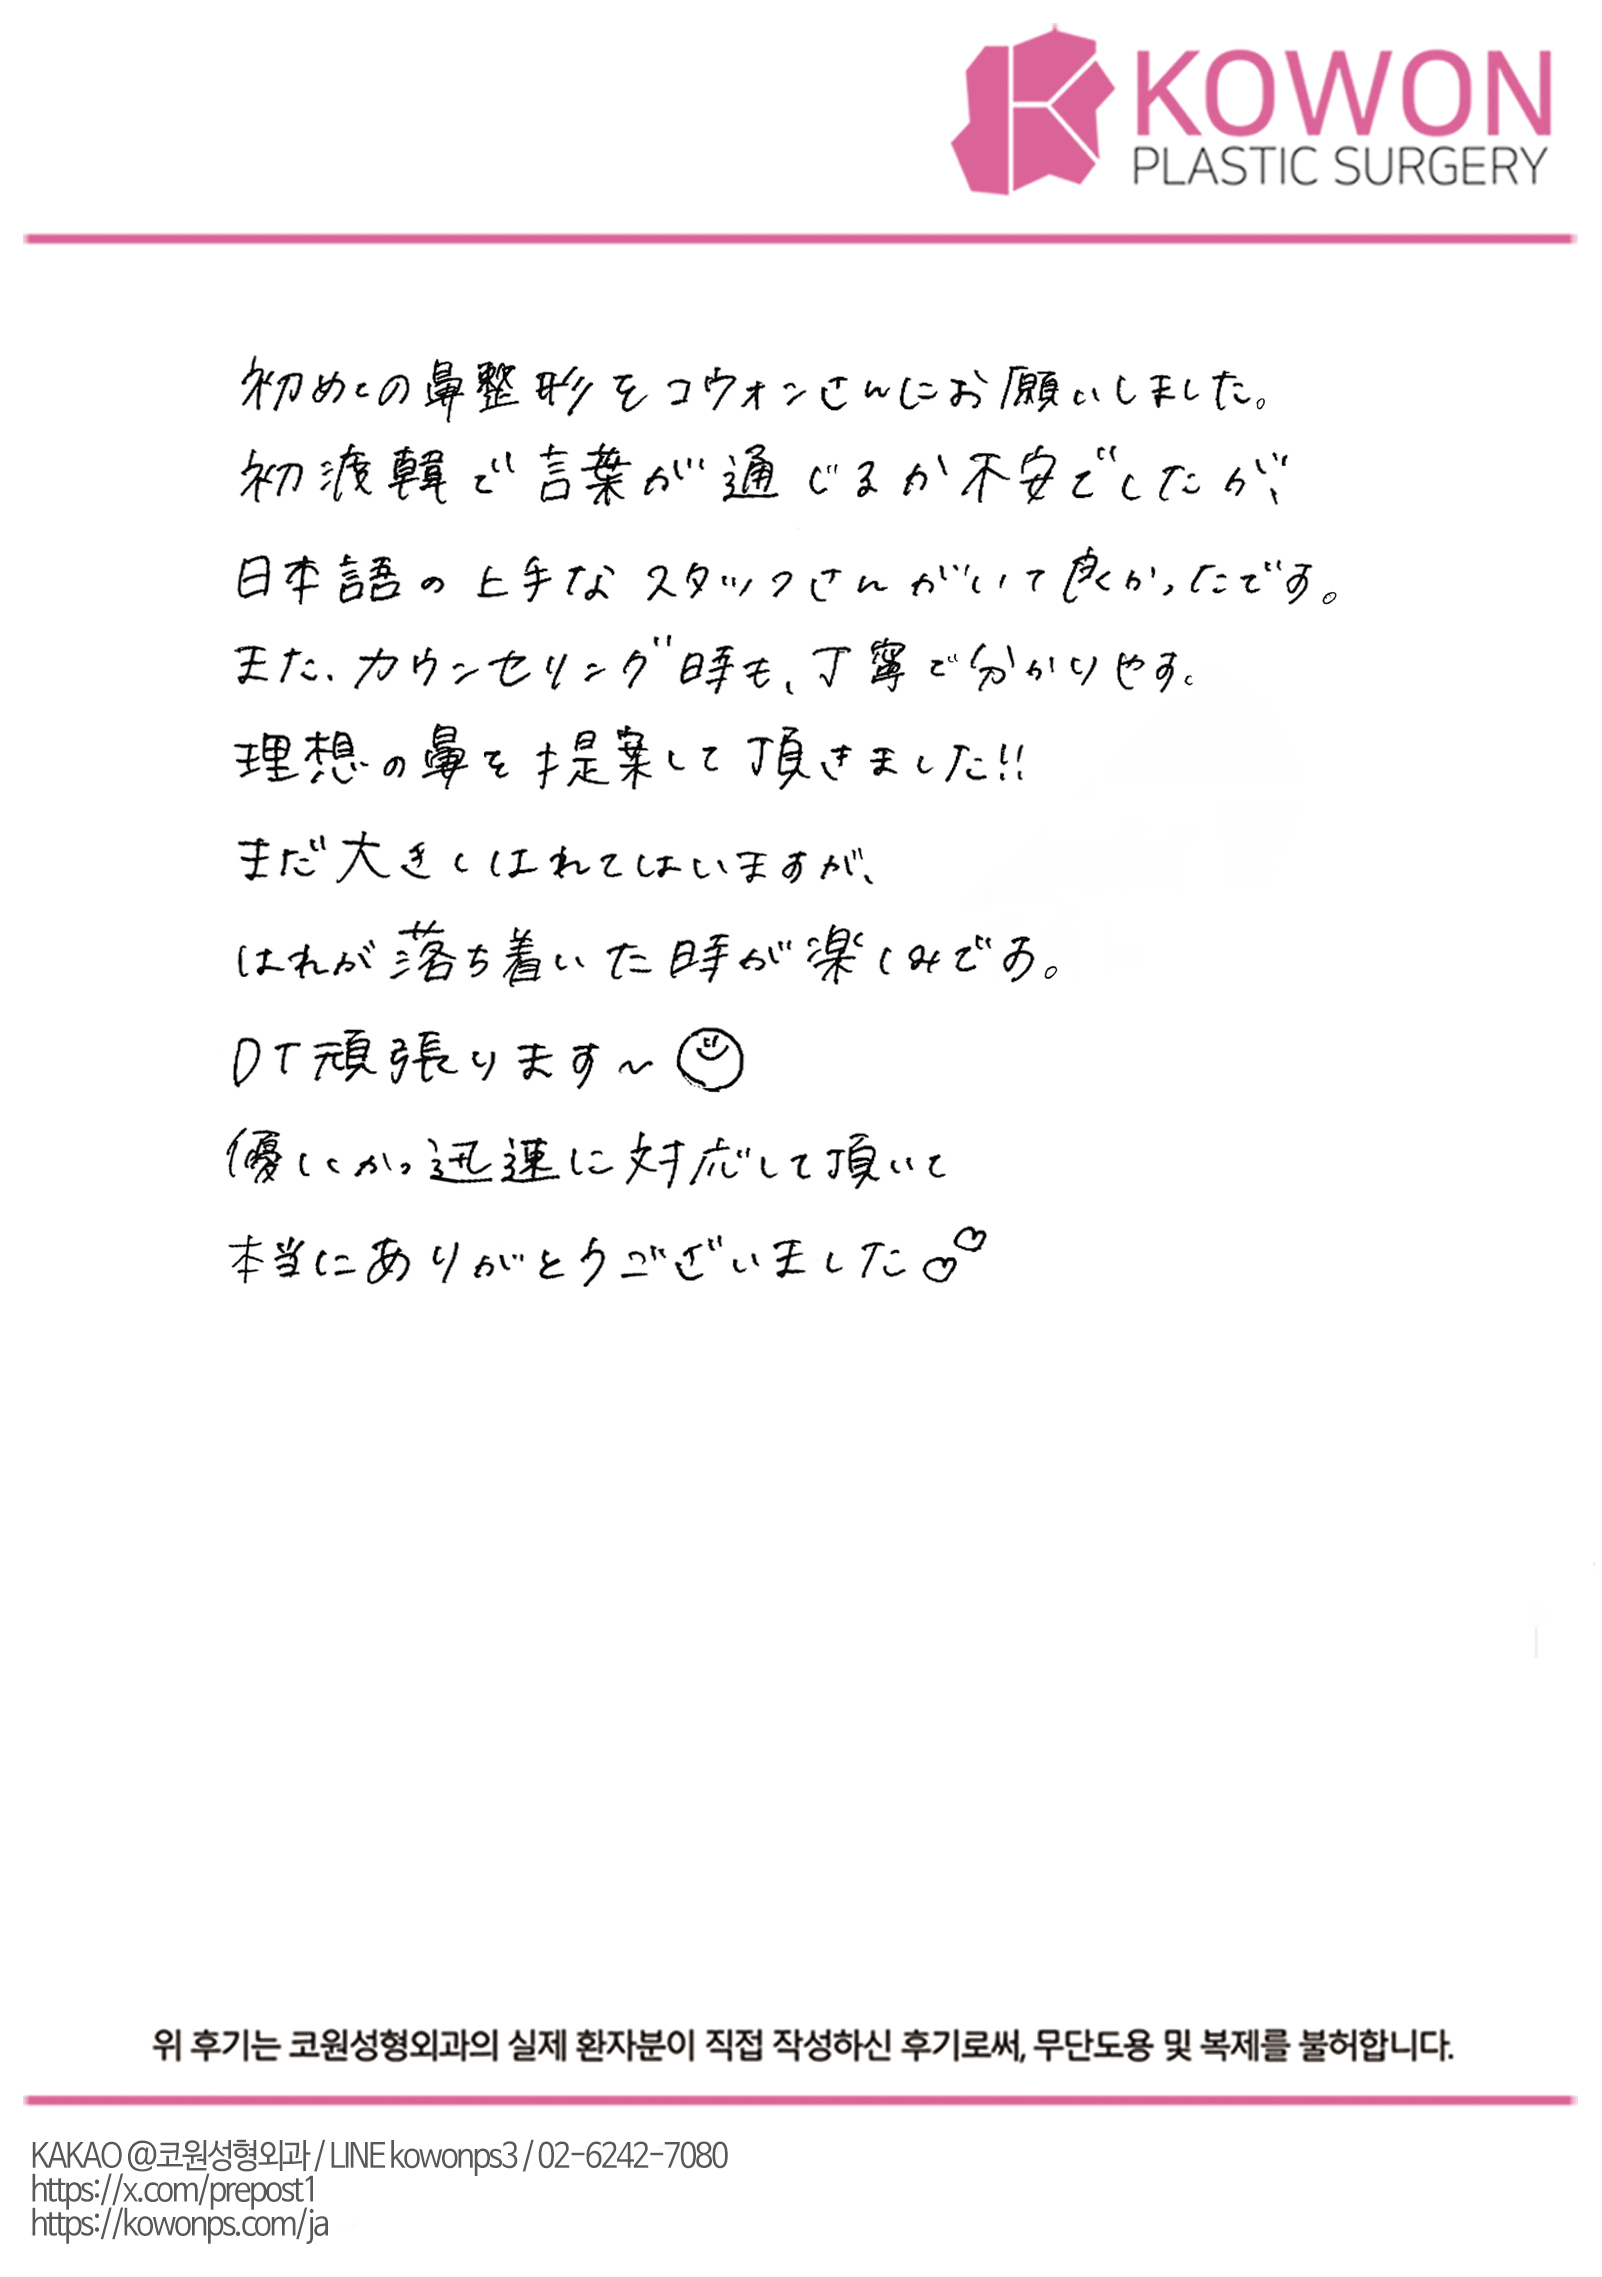 KOWON
PLASTIC SURGERY
初めての鼻整形をコウォンさんにお願いしました。
初渡韓で言葉が通じるか不安でしたが、
日本語の上手なスタッフさんがいて良かったです。
また、カウンセリング時も、丁寧で分かりやす。
理想の鼻を提案して頂きました!!
まだ大きくはれてはいますが、
はれが落ち着いた時が楽しみです。
DT頑張ります~
優しくかつ迅速に対応して頂いて
本当にありがとうございました♡♡
위 후기는 코원성형외과의 실제 환자분이 직접 작성하신 후기로써, 무단도용 및 복제를 불허합니다.
KAKAO @코원성형외과 / LINE kowonps3 / 02-6242-7080
https://x.com/prepost1
https://kowonps.com/ja